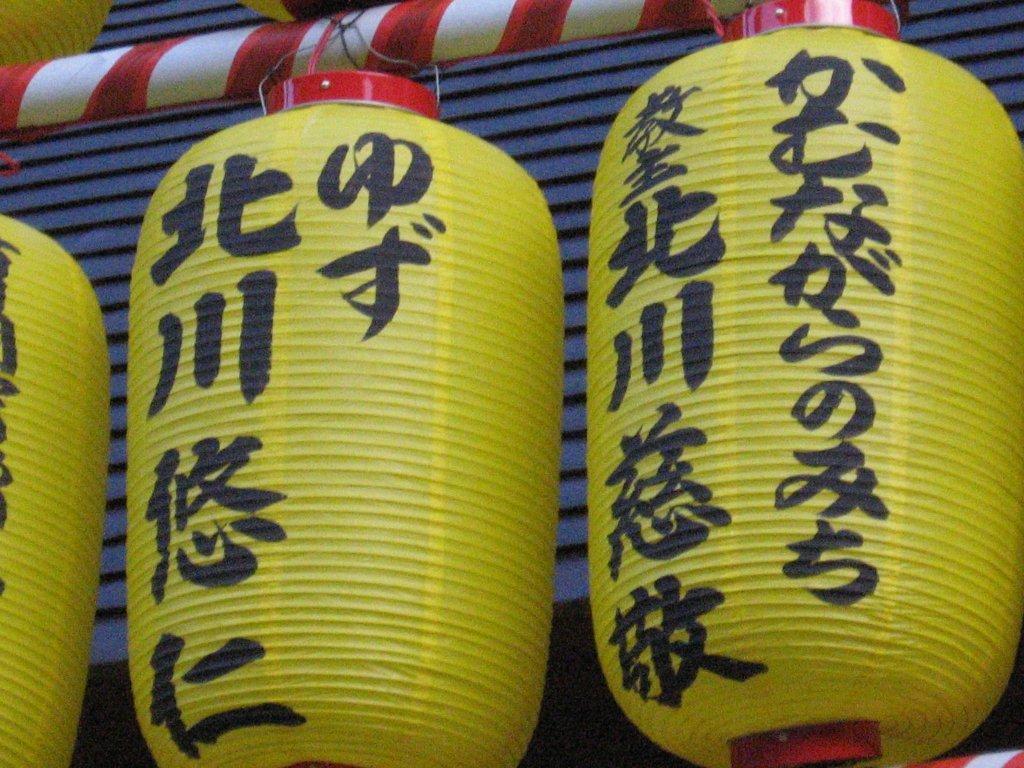 かむながらのみち
教主 北川慈敬
ゆず
北川悠仁